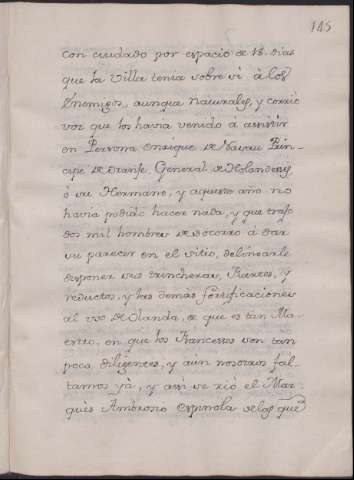 145
con cuidado por espacio de 18. dias
que la Villa tenia sobre si â los
Enemigos, aunqa Naturales, y corrio
voz que los havia venido â assistir
en Persona Enrique de Nasau Prin-
cipe de Oranse, General de Holandeses,
ô su Hermano, y aquesto año no
havia podido hacer nada, y que trajo
dos mil hombres de socorro â dar
su parecer en el sitio, delinearle
disponer sus trincheras, Fuertes, y
reductos, y las demàs fortificaciones
al uso de Olanda, de que es tan Ma-
estro, en que los Francesses son tan
poco diligentes, y aùn nosotros fal-
tamos yà, y assi se riô el Mar-
quès Ambrosio Espinola de los que